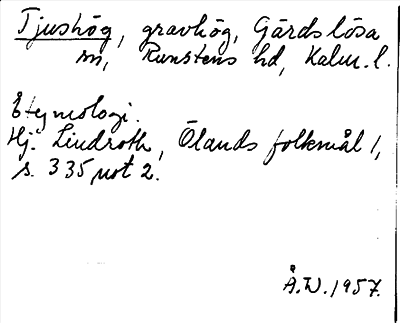 Tjushög, gravhög, Gärdslösa
sn, Runstens hd, Kalm. l.
Etymologi.
Hj. Lindroth, Ölands folkmål 1,
s. 335 not 2.
Å.W. 1957.